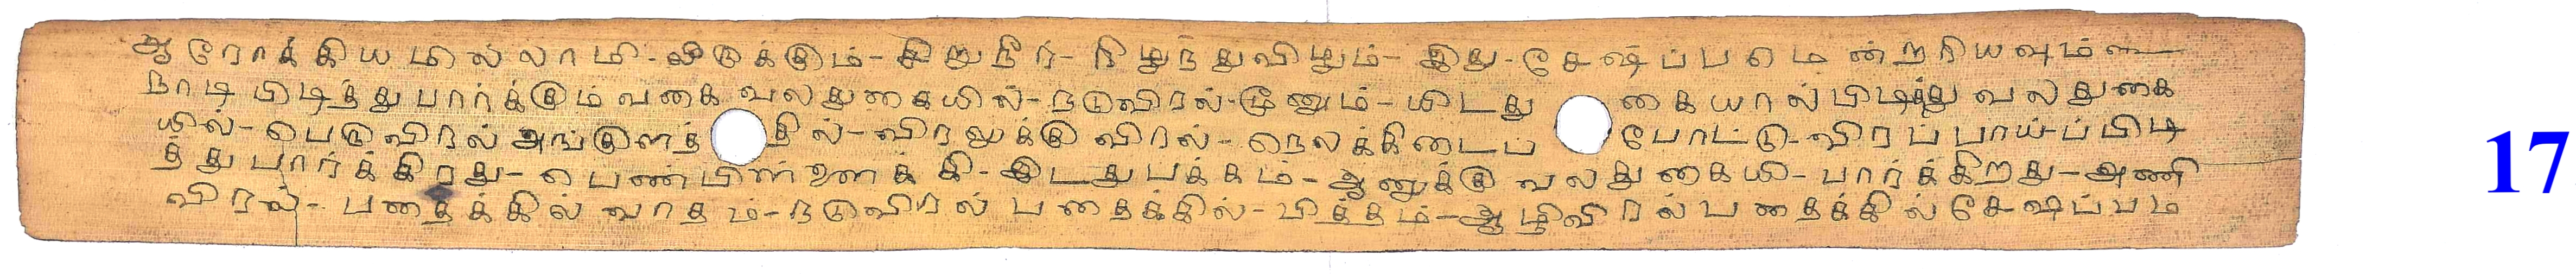 ஆரோக்கியமில்லாமி-லிடுக்கும்-சிறுநீர்-நிழந்துவிழும்-இது-சேஷ்ப்பமென்றறியவும்
நாடி பிடித்து பார்க்கும் வகை வலதுகையில்-நடுவிரல்-மூணும்-யிடது கையால் பிடித்து வலதுகை
யில்-பெருவிரல் அங்குளத்தில்-விரலுக்கு விரல்-நெலக்கிடைப் போட்டு-விரப்பாய்-ப்பிடி
த்து பார்க்கிறது-பெண்பிள்ளைக்கி-இடதுபக்கம்-ஆணுக்கு வலதுகையி-பார்க்கிறது-அணி
விரல்-பதைக்கில் வாதம்-நடுவிரல் பதைக்கில்-பித்தம்-ஆழிவிரல் பதைக்கில் சேஷப்பம
17